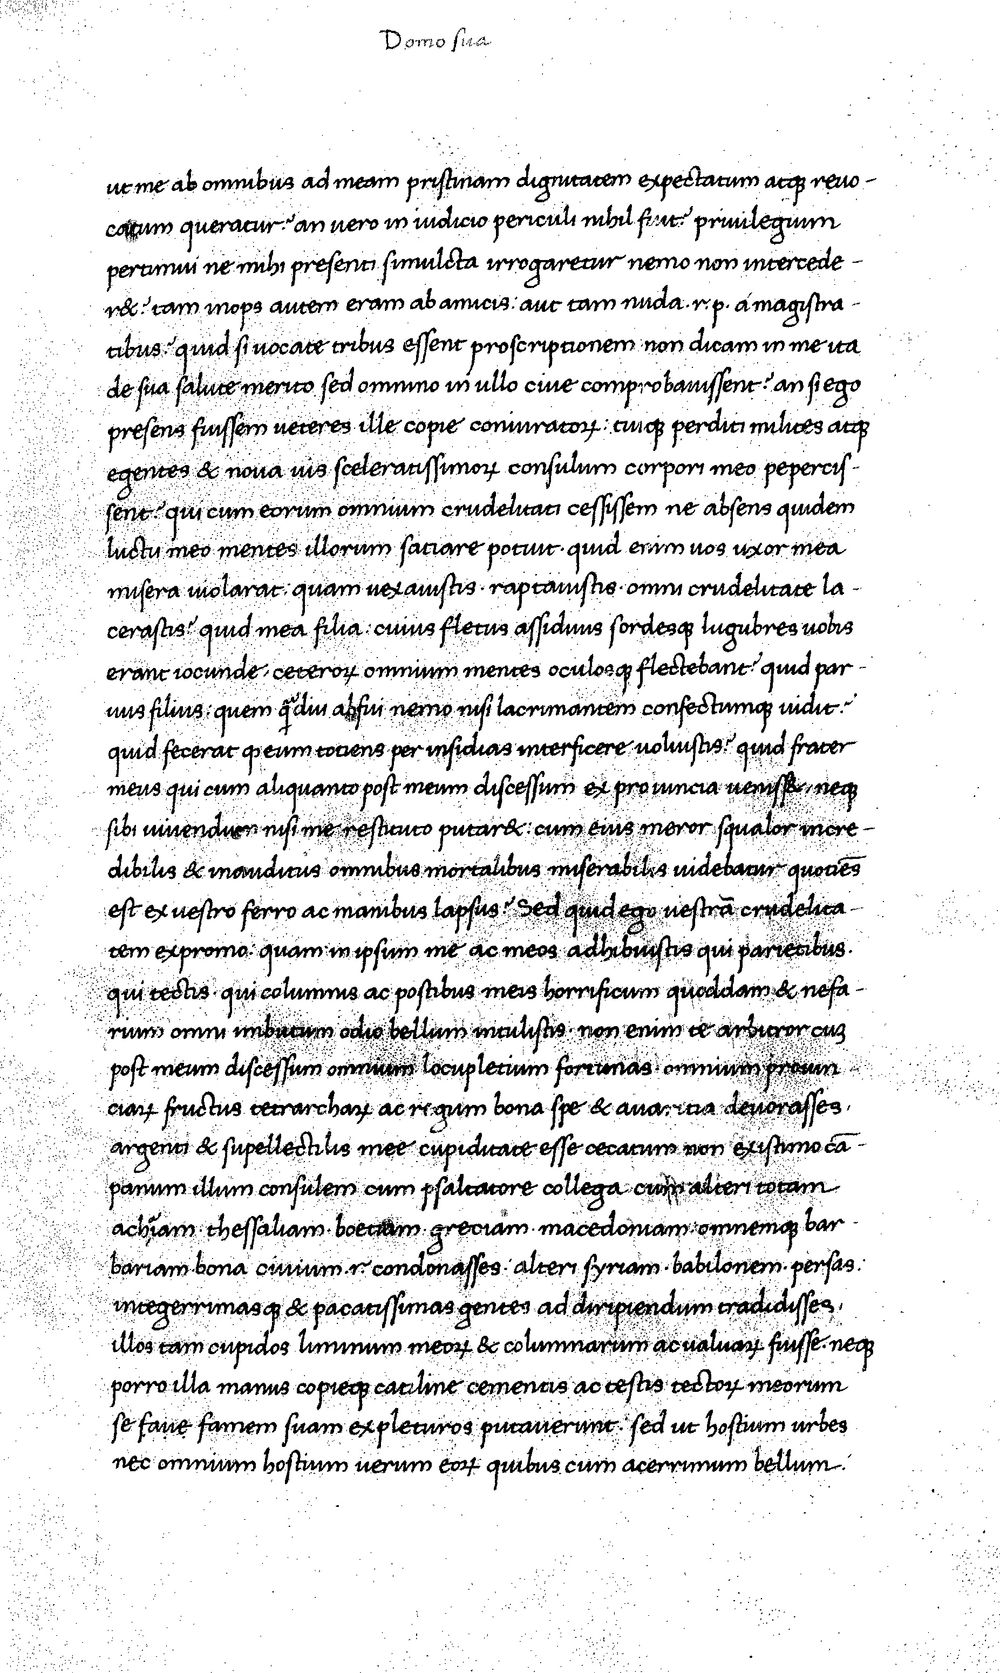 Domo sua
ut me ab omnibus ad meam pristinam dignitatem expectatum atq; reuo-
catum queratur? an uero in iudicio periculi nihil fuit? priuilegium
pertimui ne mihi presenti si mulcta irrogaretur nemo non intercede-
r&? tam inops autem eram ab amicis: aut tam nuda .r.p. á magistra-
tibus? quid si uocate tribus essent proscriptionem non dicam in me ita
de sua salute merito sed omnino in ullo ciue comprobauissent? an si ego
presens fuissem ueteres ille copie coniuratoꝝ: tuiq; perditi milites atq;
egentes & noua uis sceleratissimoꝝ consulum corpori meo pepercis-
sent? qui cum eorum omnium crudelitati cessissem ne absens quidem
luctu meo mentes illorum satiare potuit. quid enim uos uxor mea
misera uiolarat: quam uexauistis. raptauistis. omni crudelitate la-
cerastis? quid mea filia: cuius fletus assiduus sordesq; lugubres uobis
erant iocunde, ceteroꝝ omnium mentes oculosq; flectebant? quid par-
uus filius: quem q̃diu abfui nemo nisi lacrimantem confectumq; uidit?
quid fecerat ꝙ eum totiens per insidias interficere uoluistis? quid frater
meus qui cum aliquanto post meum discessum ex prouincia uenisset, neq;
sibi uiuendum nisi me restituto putar&: cum eius meror squalor incre-
dibilis & inauditus omnibus mortalibus miserabilis uidebatur quotiēs
est ex uestro ferro ac manibus lapsus? Sed quid ego uestrā crudelita-
tem expromo: quam in ipsum me ac meos adhibuistis qui parietibus.
qui tectis. qui columnis ac postibus meis horrificum quoddam & nefa-
rium omni imbutum odio bellum intulistis. non enim te arbitror cuꝫ
post meum discessum omnium locupletium fortunas. omnium prouin
ciaꝝ fructus tetrarchaꝝ ac regum bona spe & auaritia deuorasses.
argenti & supellectilis mee cupiditate esse cecatum non existimo cā-
panum illum consulem cum psaltatore collega cum alteri totam
achiam. thessaliam. boetiam. greciam. macedoniam. omnemq; bar-
bariam. bona ciuium .r. condonasses: alteri syriam. babilonem. persas:
integerrimasq; & pacatissimas gentes ad diripiendum tradidisses,
illos tam cupidos liminum meoꝝ & columnarum ac ualuaꝝ fuisse. neq;
porro illa manus copieq; catiline cementis ac testis tectoꝝ meorum
se faue famem suam expleturos putauerunt. sed ut hostium urbes
nec omnium hostium uerum eoꝝ quibus cum acerrimum bellum.